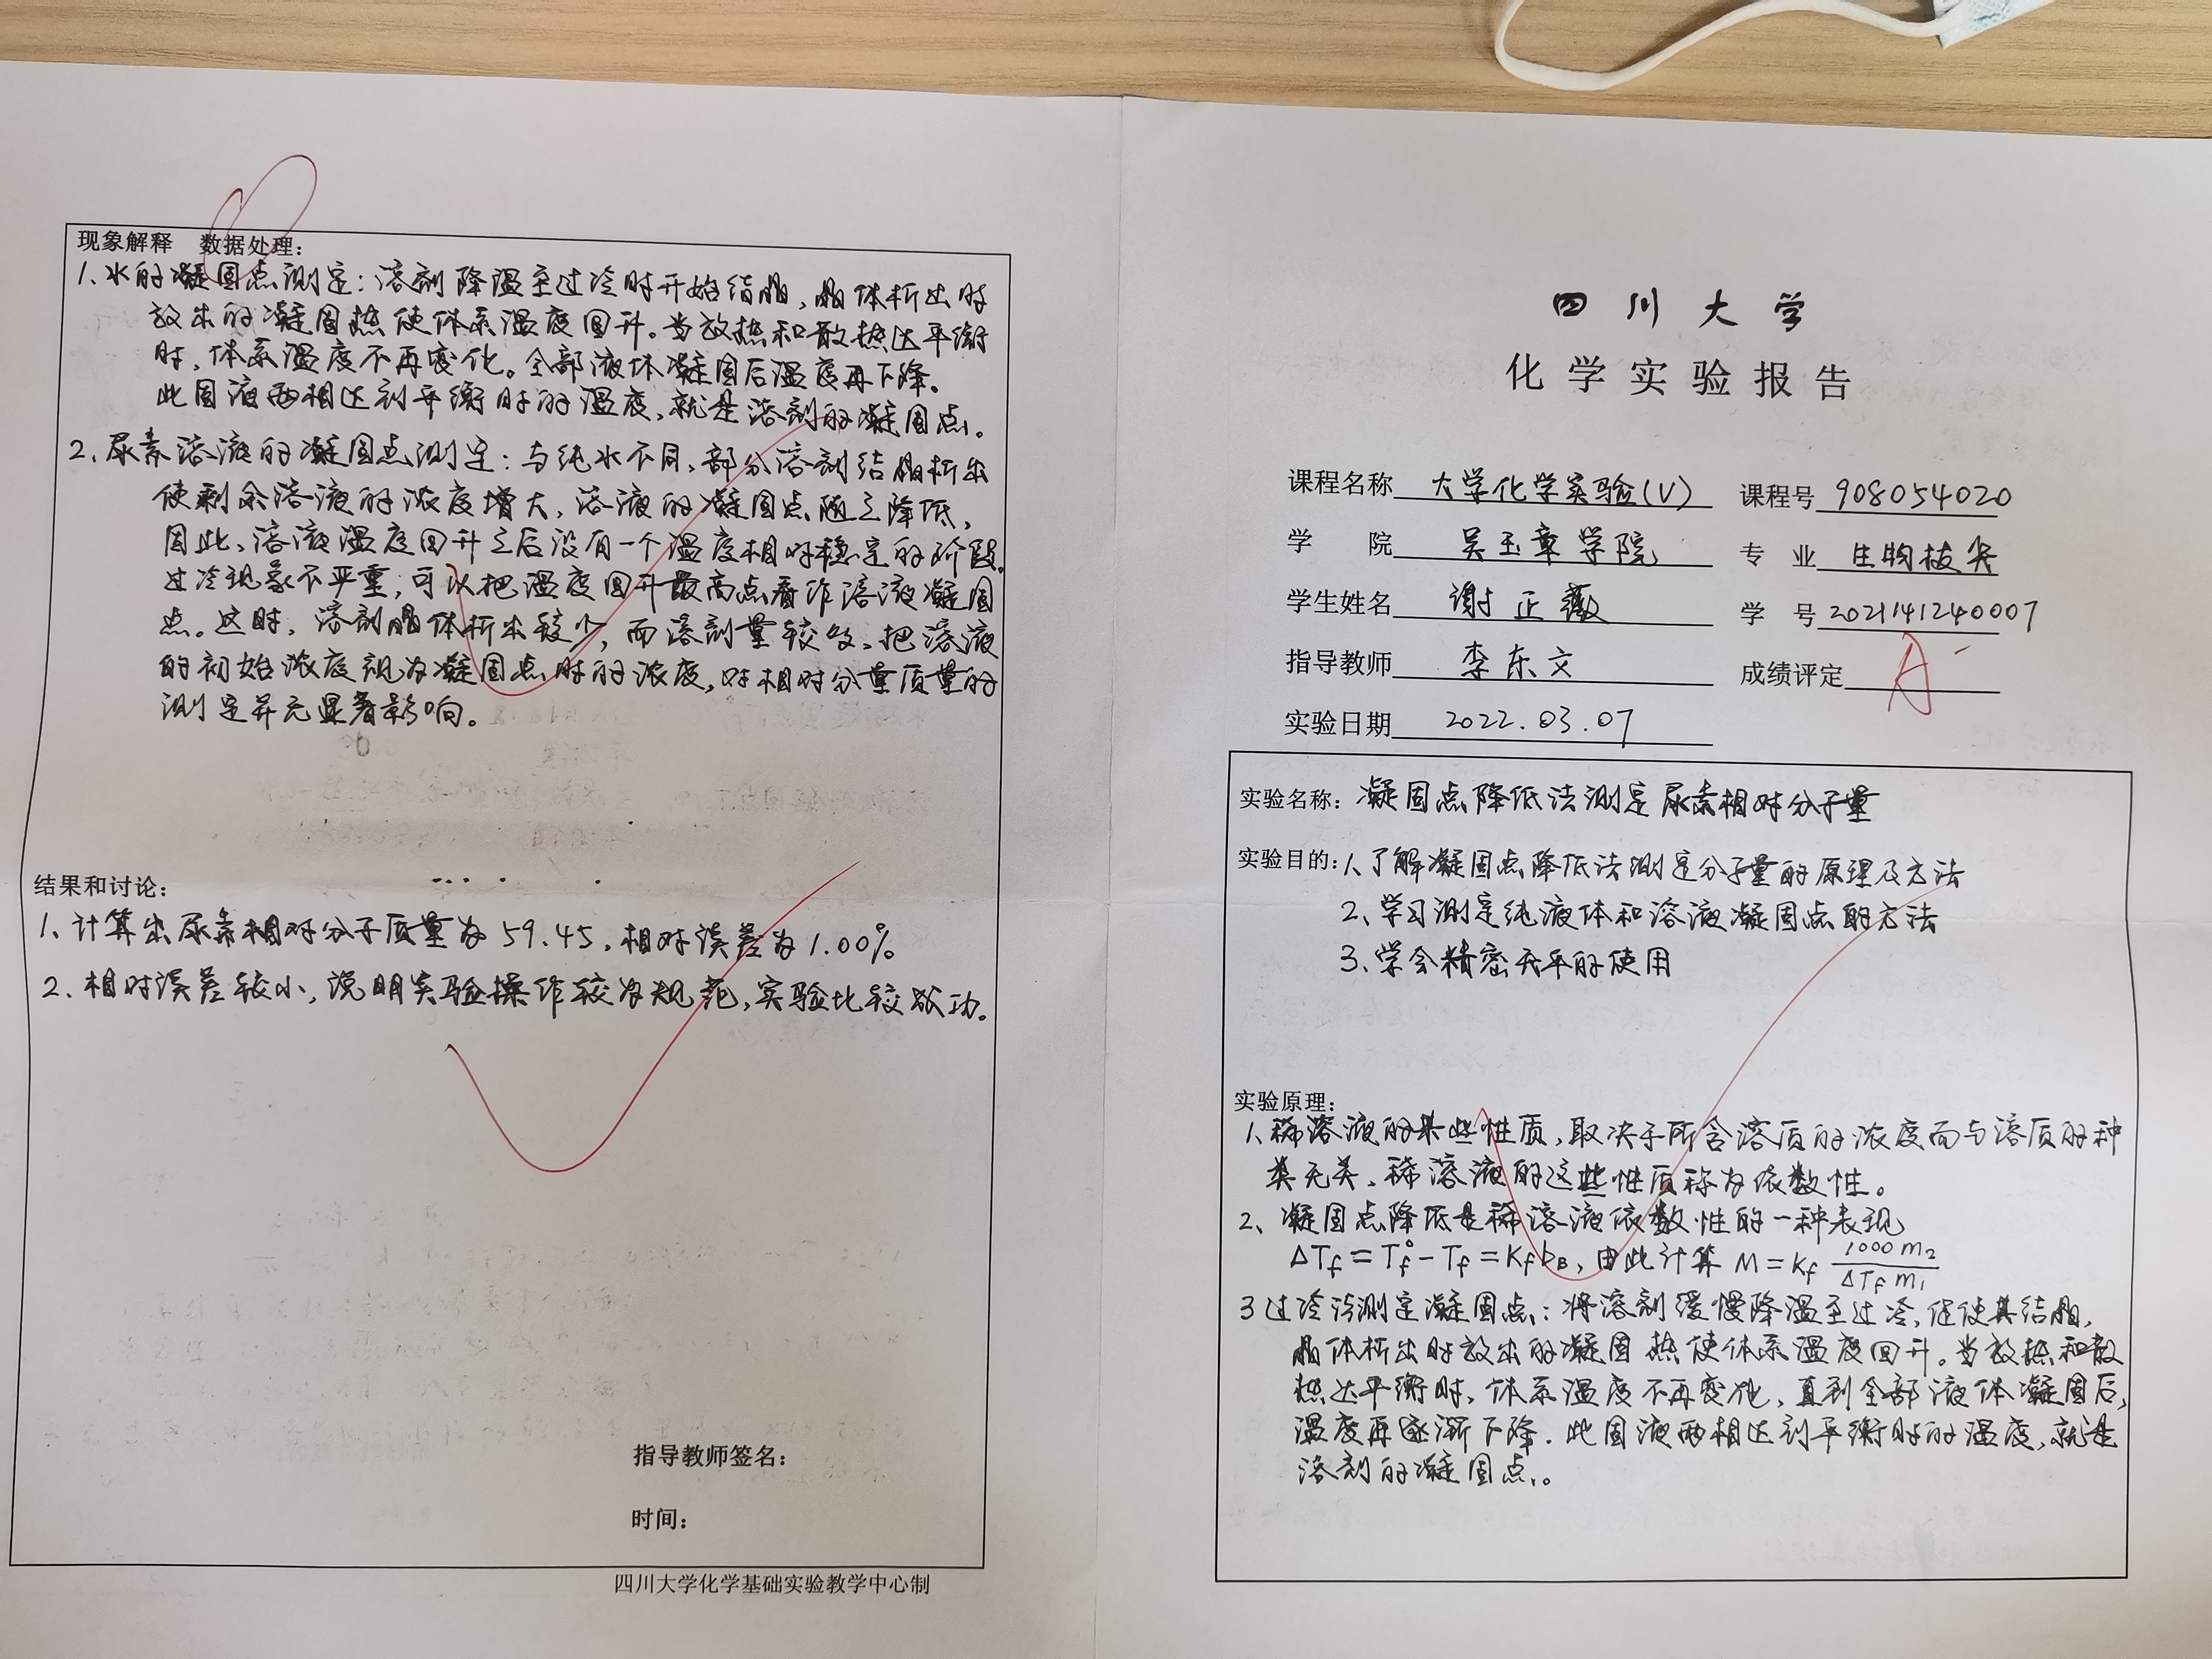 现象解释 数据处理:
1、水的凝固点测定:溶剂降温至过冷时开始结晶,晶体析出时
放出的凝固热使体系温度回升。当放热和散热达平衡
时,体系温度不再变化。全部液体凝固后温度再下降。
此固液两相达到平衡时的温度,就是溶剂的凝固点。
2、尿素溶液的凝固点测定:与纯水不同,部分溶剂结晶析出
使剩余溶液的浓度增大,溶液的凝固点随之降低,
因此,溶液温度回升之后没有一个温度相对稳定的阶段。
过冷现象不严重,可以把温度回升最高点看作溶液凝固
点。这时,溶剂晶体析出较少,而溶剂量较多,把溶液
的初始浓度视为凝固点时的浓度,对相对分量质量的
测定并无显著影响。
结果和讨论:
1、计算出尿素相对分子质量为59.45,相对误差为1.00%
2、相对误差较小,说明实验操作较为规范,实验比较成功。
指导教师签名:
时间:
四川大学化学基础实验教学中心制
四川大学
化学实验报告
课程名称 大学化学实验(V) 课程号 908054020
学 院 吴玉章学院 专 业 生物拔尖
学生姓名 谢正薇 学 号 2021141240007
指导教师 李东文 成绩评定 A-
实验日期 2022.03.07
实验名称: 凝固点降低法测定尿素相对分子量
实验目的: 1、了解凝固点降低法测定分子量的原理及方法
2、学习测定纯液体和溶液凝固点的方法
3、学会精密天平的使用
实验原理:
1、稀溶液的某些性质,取决于所含溶质的浓度而与溶质的种
类无关、稀溶液的这些性质称为依数性。
2、凝固点降低是稀溶液依数性的一种表现
ΔTf = Tf° - Tf = Kf bB, 由此计算 M = Kf 1000 m2 / ΔTf m1
3 过冷法测定凝固点:将溶剂缓慢降温至过冷,促使其结晶,
晶体析出时放出的凝固热使体系温度回升。当放热和散
热达平衡时,体系温度不再变化,直到全部液体凝固后,
温度再逐渐下降.此固液两相达到平衡时的温度,就是
溶剂的凝固点。